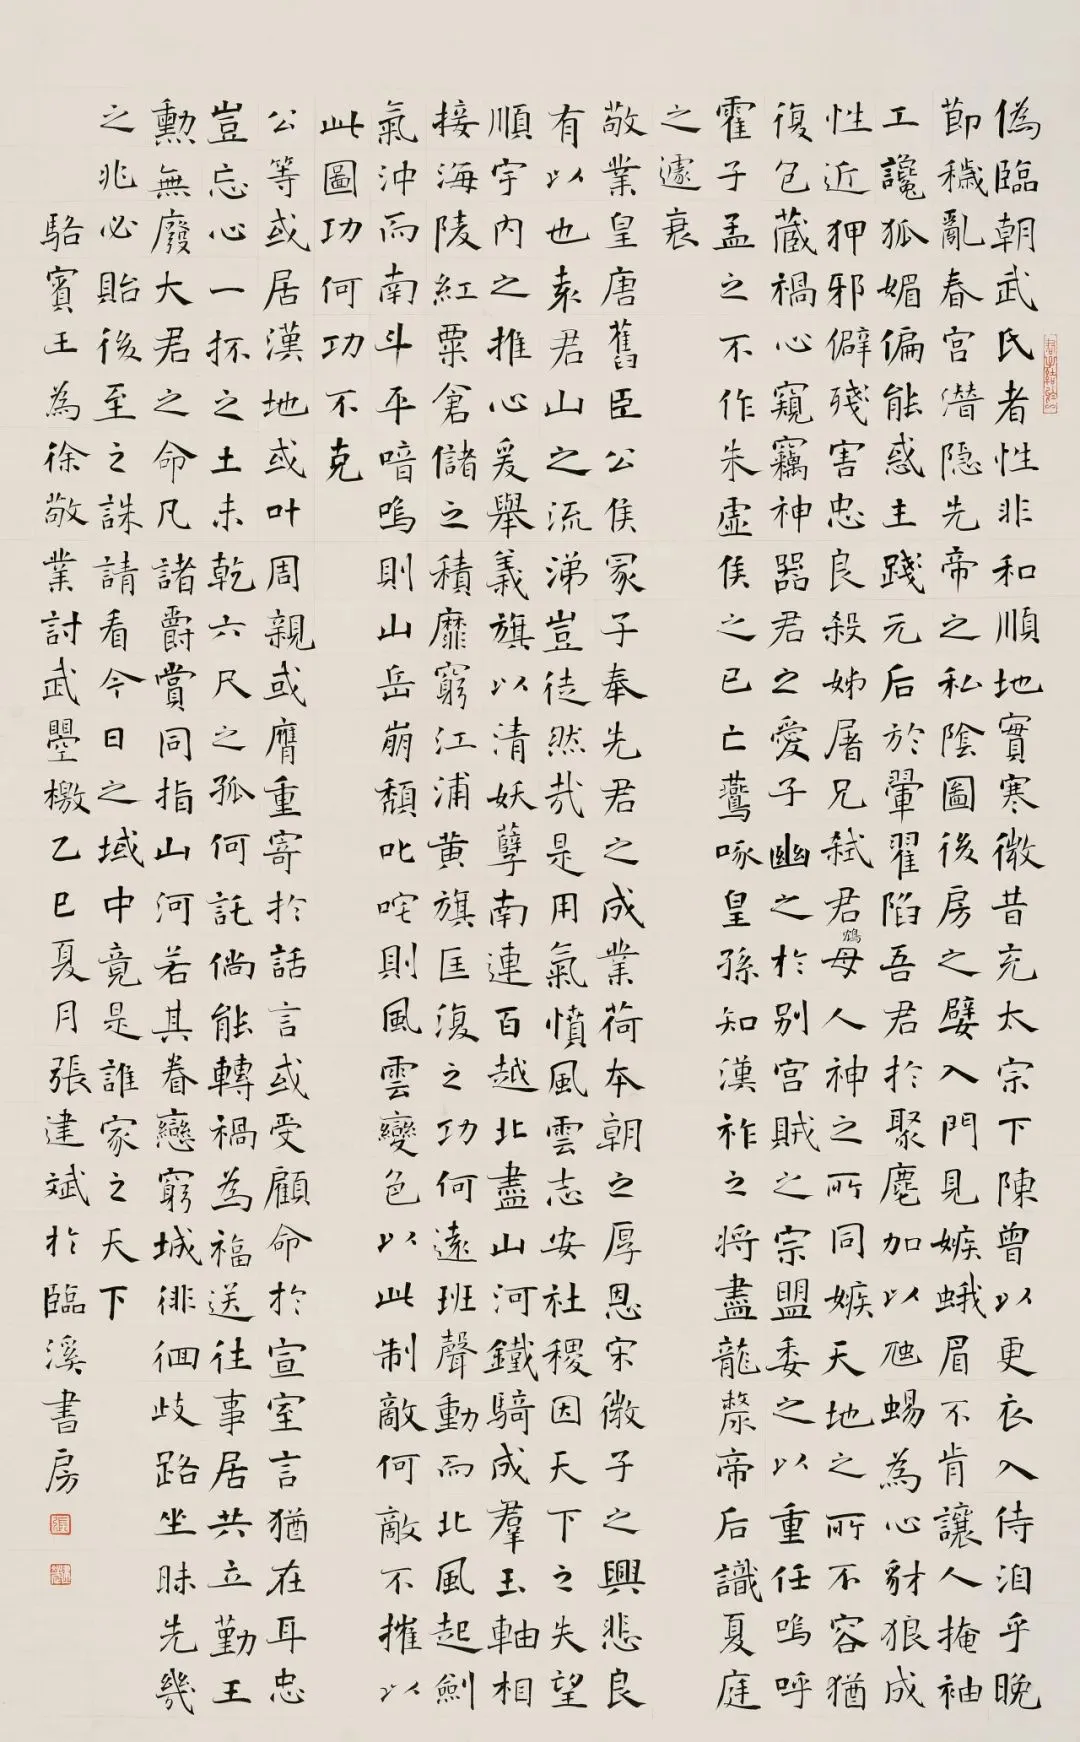 偽臨朝武氏者性非和順地實寒微昔充太宗下陳曾以更衣入侍洎乎晚
節穢亂春宮潛隱先帝之私陰圖後房之嬖入門見嫉蛾眉不肯讓人掩袖
工讒狐媚偏能惑主踐元后於翬翟陷吾君於聚麀加以虺蜴為心豺狼成
性近狎邪僻殘害忠良殺姊屠兄弒君鴆母人神之所同嫉天地之所不容猶
復包藏禍心窺竊神器君之愛子幽之於別宮賊之宗盟委之以重任嗚呼
霍子孟之不作朱虛侯之已亡鷰啄皇孫知漢祚之將盡龍漦帝后識夏庭
之遽衰
敬業皇唐舊臣公侯冢子奉先君之成業荷本朝之厚恩宋微子之興悲良
有以也袁君山之流涕豈徒然哉是用氣憤風雲志安社稷因天下之失望
順宇內之推心爰舉義旗以清妖孽南連百越北盡山河鐵騎成羣玉軸相
接海陵紅粟倉儲之積靡窮江浦黃旗匡復之功何遠班聲動而北風起劍
氣沖而南斗平喑嗚則山岳崩頹叱咤則風雲變色以此制敵何敵不摧以
此圖功何功不克
公等或居漢地或叶周親或膺重寄於話言或受顧命於宣室言猶在耳忠
豈忘心一抔之土未乾六尺之孤何託倘能轉禍為福送往事居共立勤王
勳無廢大君之命凡諸爵賞同指山河若其眷戀窮城徘徊歧路坐昧先幾
之兆必貽後至之誅請看今日之域中竟是誰家之天下
駱賓王為徐敬業討武曌檄乙巳夏月張建斌於臨溪書房